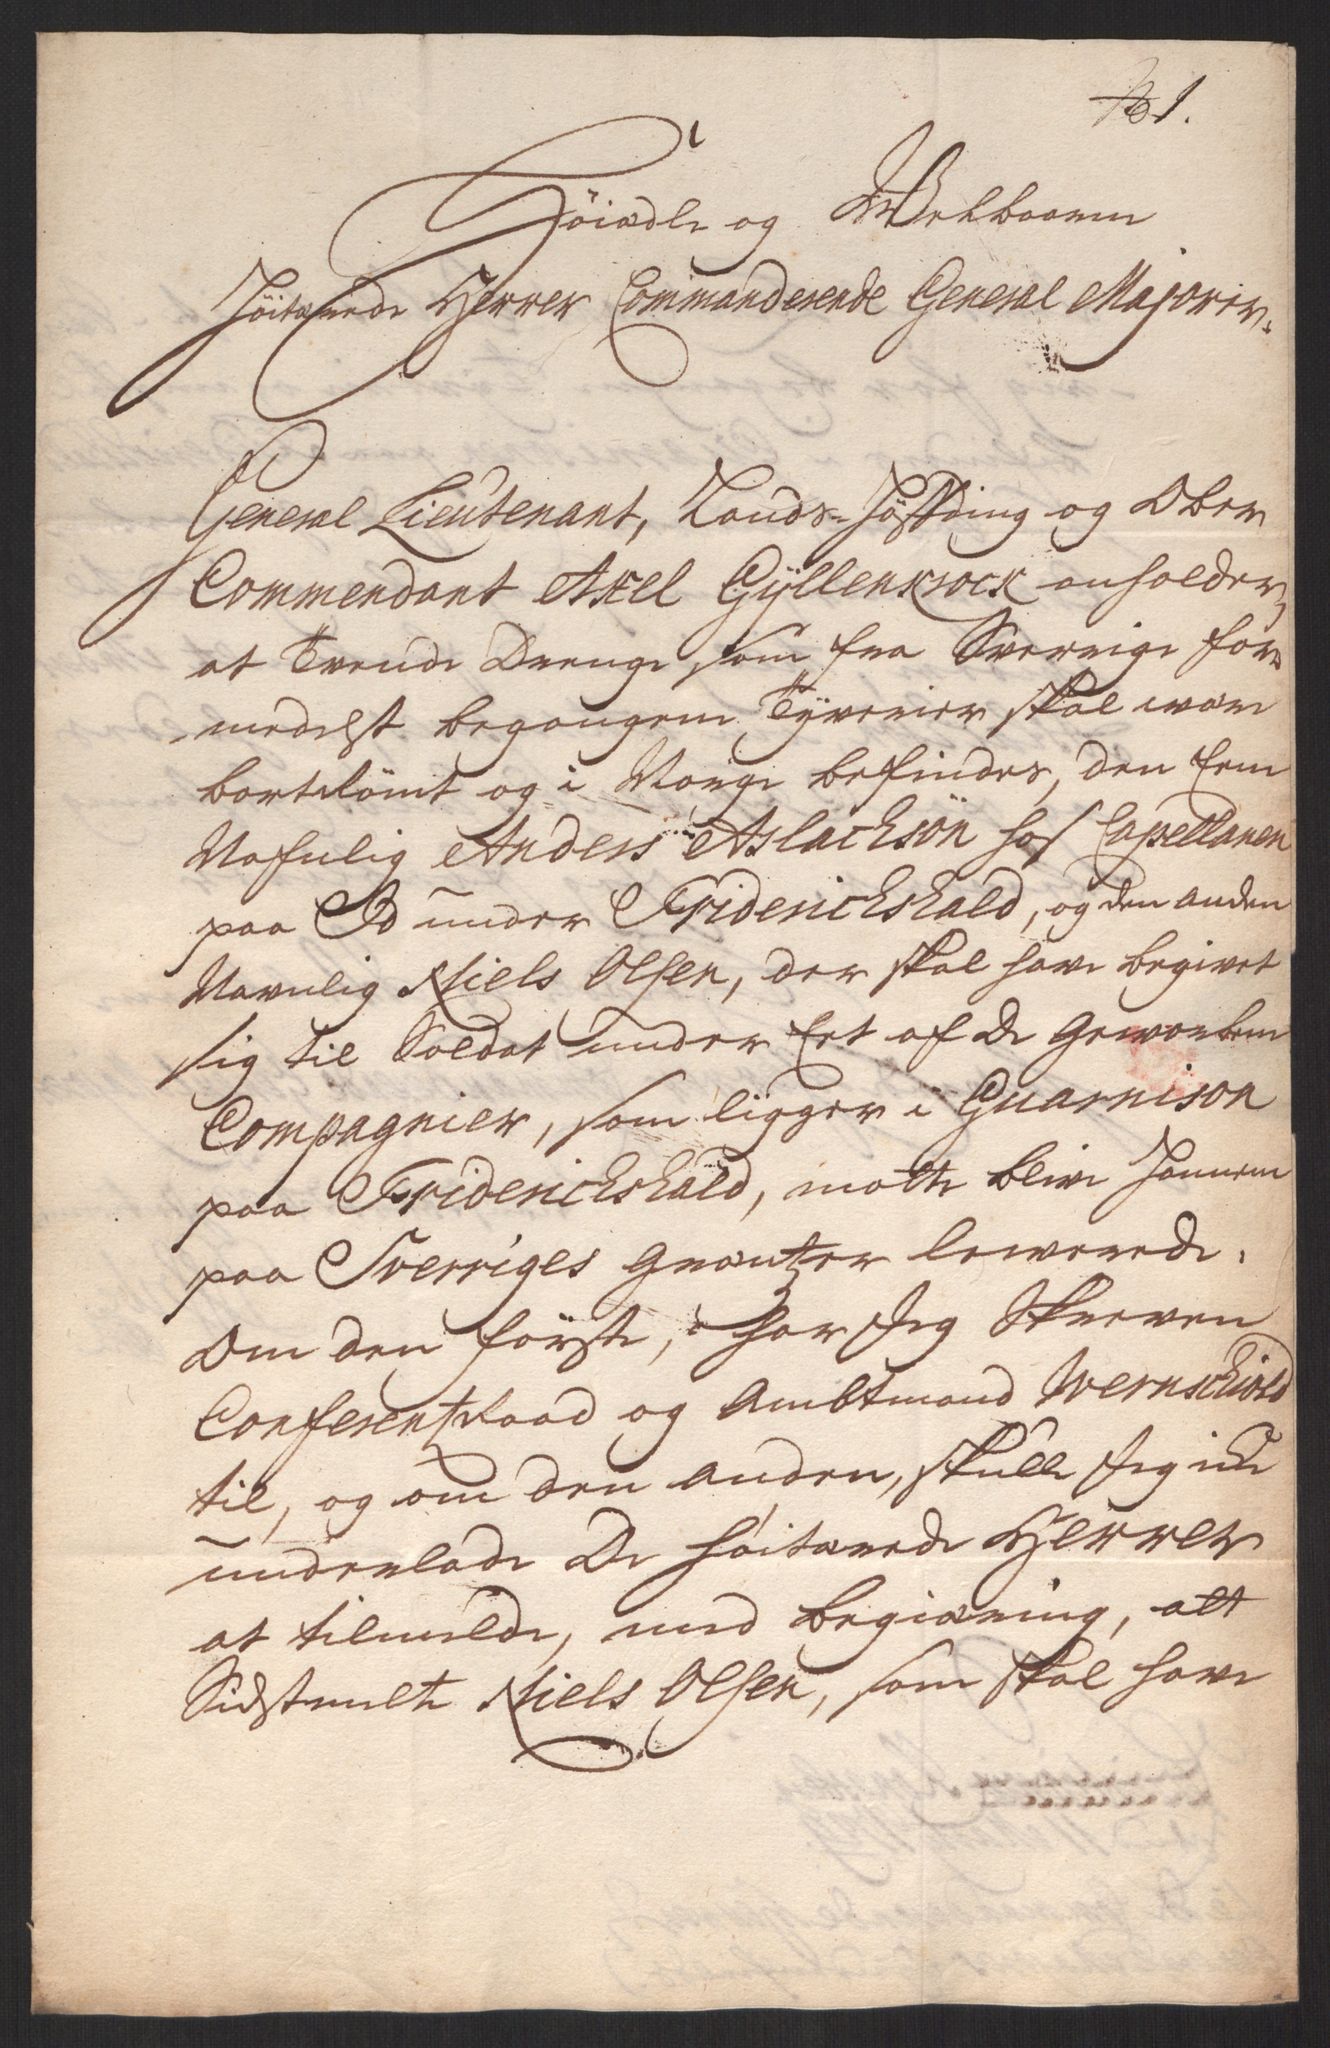 No 1.
Höiædle og Welbaarne
Höitærede Herrer Commanderende General Majorer.
General Lieutenant, Lands-Höffding og Ober
Commendant Axel Gÿllenkrock anholder,
at Tvende Drenge som fra Sverrige for¬
medelst begangene Tÿverier skal være
bortrömt og i Norge befindes, den Eene
Nafnlig Anders Aslachsön hos Capellanen
paa Id under Friderichshald, og den anden
Navnlig Niels Olsen, der skal have begivet
sig til Soldat under Eet af De Geworbene
Compagnier, som ligger i Guarnison
paa Friderichshald, matte blive Hannem
paa Sverriges Grentzer leverede.
Om den förste, har Jeg Skreven
Conferentz Raad og Ambtmand Wernschiold
til, og om den anden, skulle Jeg icke
underlade De höitærede Herrer
at tilmelde, med begiæring, att
Sidstmelte Niels Olsen, som skal have